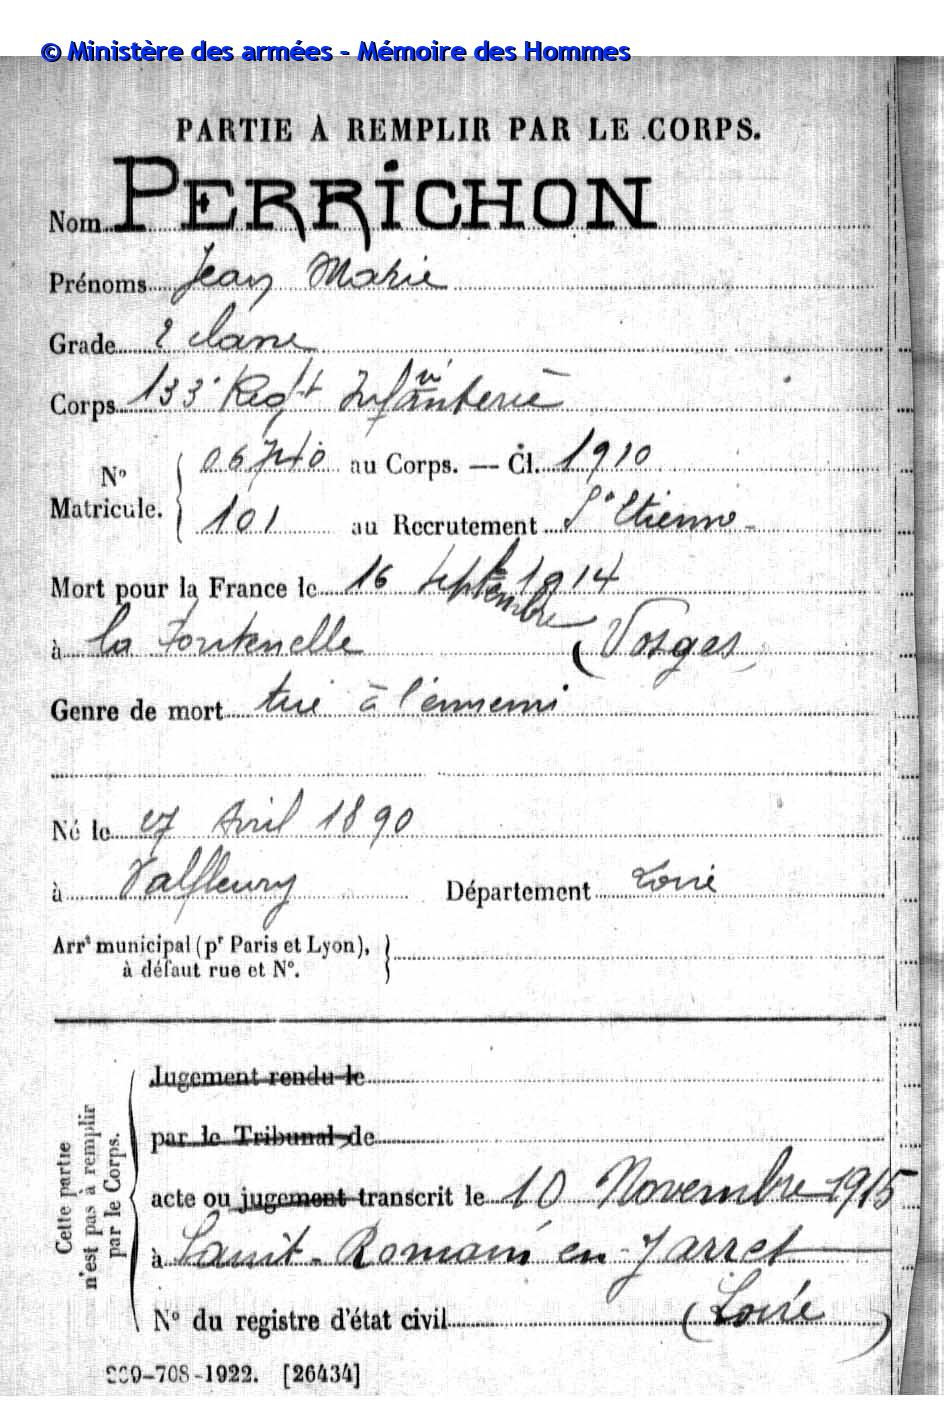 © Ministère des armées - Mémoire des Hommes
PARTIE À REMPLIR PAR LE CORPS.
Nom PERRICHON
Prénoms Jean Marie
Grade 2 classe
Corps 133e Regt Infanterie
No Matricule. { 06740 au Corps. — Cl. 1910
101 au Recrutement St Etienne
Mort pour la France le 16 septembre 1914
à la Fontenelle (Vosges)
Genre de mort tué à l'ennemi
Né le 27 Avril 1890
à Valfleury Département Loire
Arrt municipal (pr Paris et Lyon),
à défaut rue et No.
Cette partie
n'est pas à remplir
par le Corps.
Jugement rendu le
par le Tribunal de
acte ou jugement transcrit le 10 Novembre 1915
à Saint-Romain en-Jarret
(Loire)
No du registre d'état civil
-708-1922. [26434]